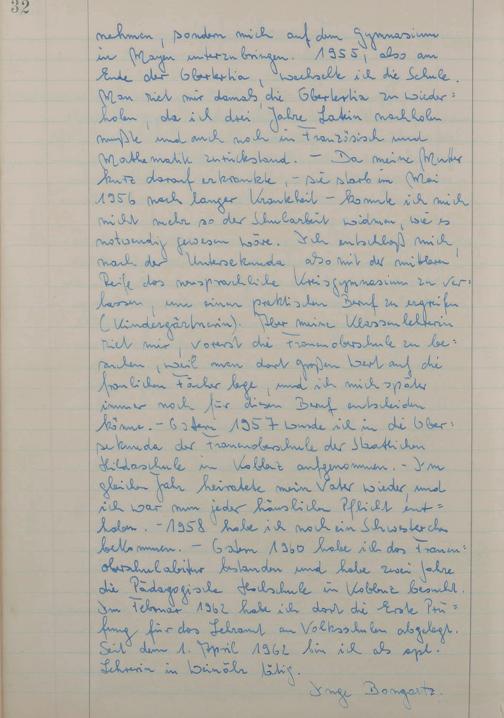 32
nehmen, sondern mich auf dem Gymnasium
in Mayen unterzubringen. 1955, also am
Ende der Obertertia, wechselte ich die Schule.
Man riet mir damals, die Obertertia zu wieder=
holen, da ich drei Jahre Latein nachholen
mußte und auch noch in Französisch und
Mathematik zurückstand. – Da meine Mutter
kurz darauf erkrankte, – sie starb im Mai
1956 nach langer Krankheit – konnte ich mich
nicht mehr so der Schularbeit widmen, wie es
notwendig gewesen wäre. Ich entschloß mich,
nach der Untersekunda, also mit der mittleren
Reife das neusprachliche Kreisgymnasium zu ver=
lassen, um einen praktischen Beruf zu ergreifen
(Kindergärtnerin). Aber meine Klassenlehrerin
riet mir, vorerst die Frauenoberschule zu be=
suchen, weil man dort großen Wert auf die
fraulichen Fächer lege, und ich mich später
immer noch für diesen Beruf entscheiden
könne. – Ostern 1957 wurde ich in die Ober=
sekunda der Frauenoberschule der Staatlichen
Hildaschule in Koblenz aufgenommen. – Im
gleichen Jahr heiratete mein Vater wieder, und
ich war nun jeder häuslichen Pflicht ent=
hoben. – 1958 habe ich noch ein Schwesterchen
bekommen. – Ostern 1960 habe ich das Frauen=
oberschulabitur bestanden und habe zwei Jahre
die Pädagogische Hochschule in Koblenz besucht.
Im Februar 1962 habe ich dort die Erste Prü=
fung für das Lehramt an Volksschulen abgelegt.
Seit dem 1. April 1962 bin ich als apl.
Lehrerin in Weinähr tätig.
Inge Bongartz.